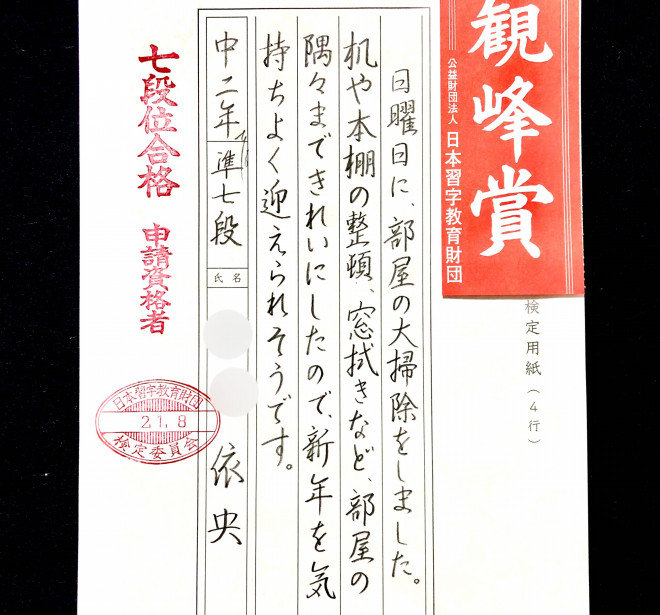 観峰賞
公益財団法人 日本習字教育財団
検定用紙(4行)
日曜日に、部屋の大掃除をしました。
机や本棚の整頓、窓拭きなど、部屋の
隅々まできれいにしたので、新年を気
持ちよく迎えられそうです。
中二年 準七段 氏名 依央
七段位合格 申請資格者
日本習字教育財団
21.8
検定委員会